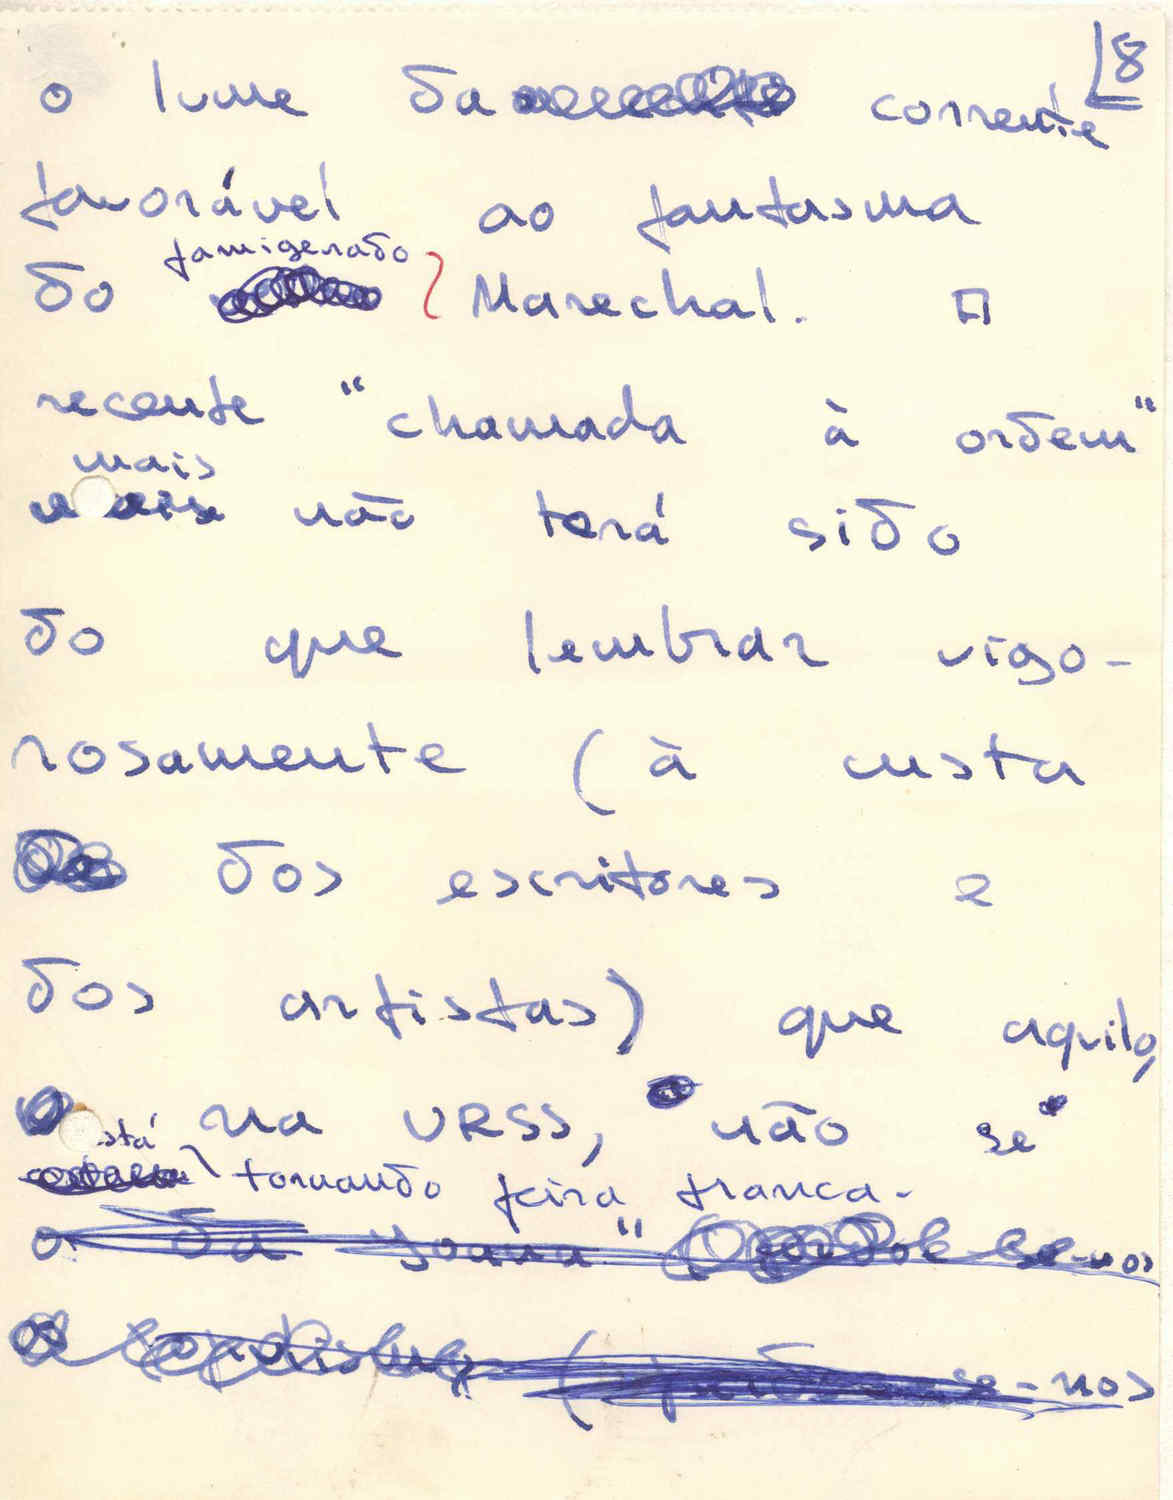 8
o lume da corrente
favorável ao fantasma
famigerado
do Marechal. A
recente "chamada à ordem"
mais
não terá sido
do que lembrar vigo-
rosamente (à custa
dos escritores e
dos artistas) que aquilo,
na URSS, não se
está tornando feira franca.
o da Joana" se-nos
( se-nos